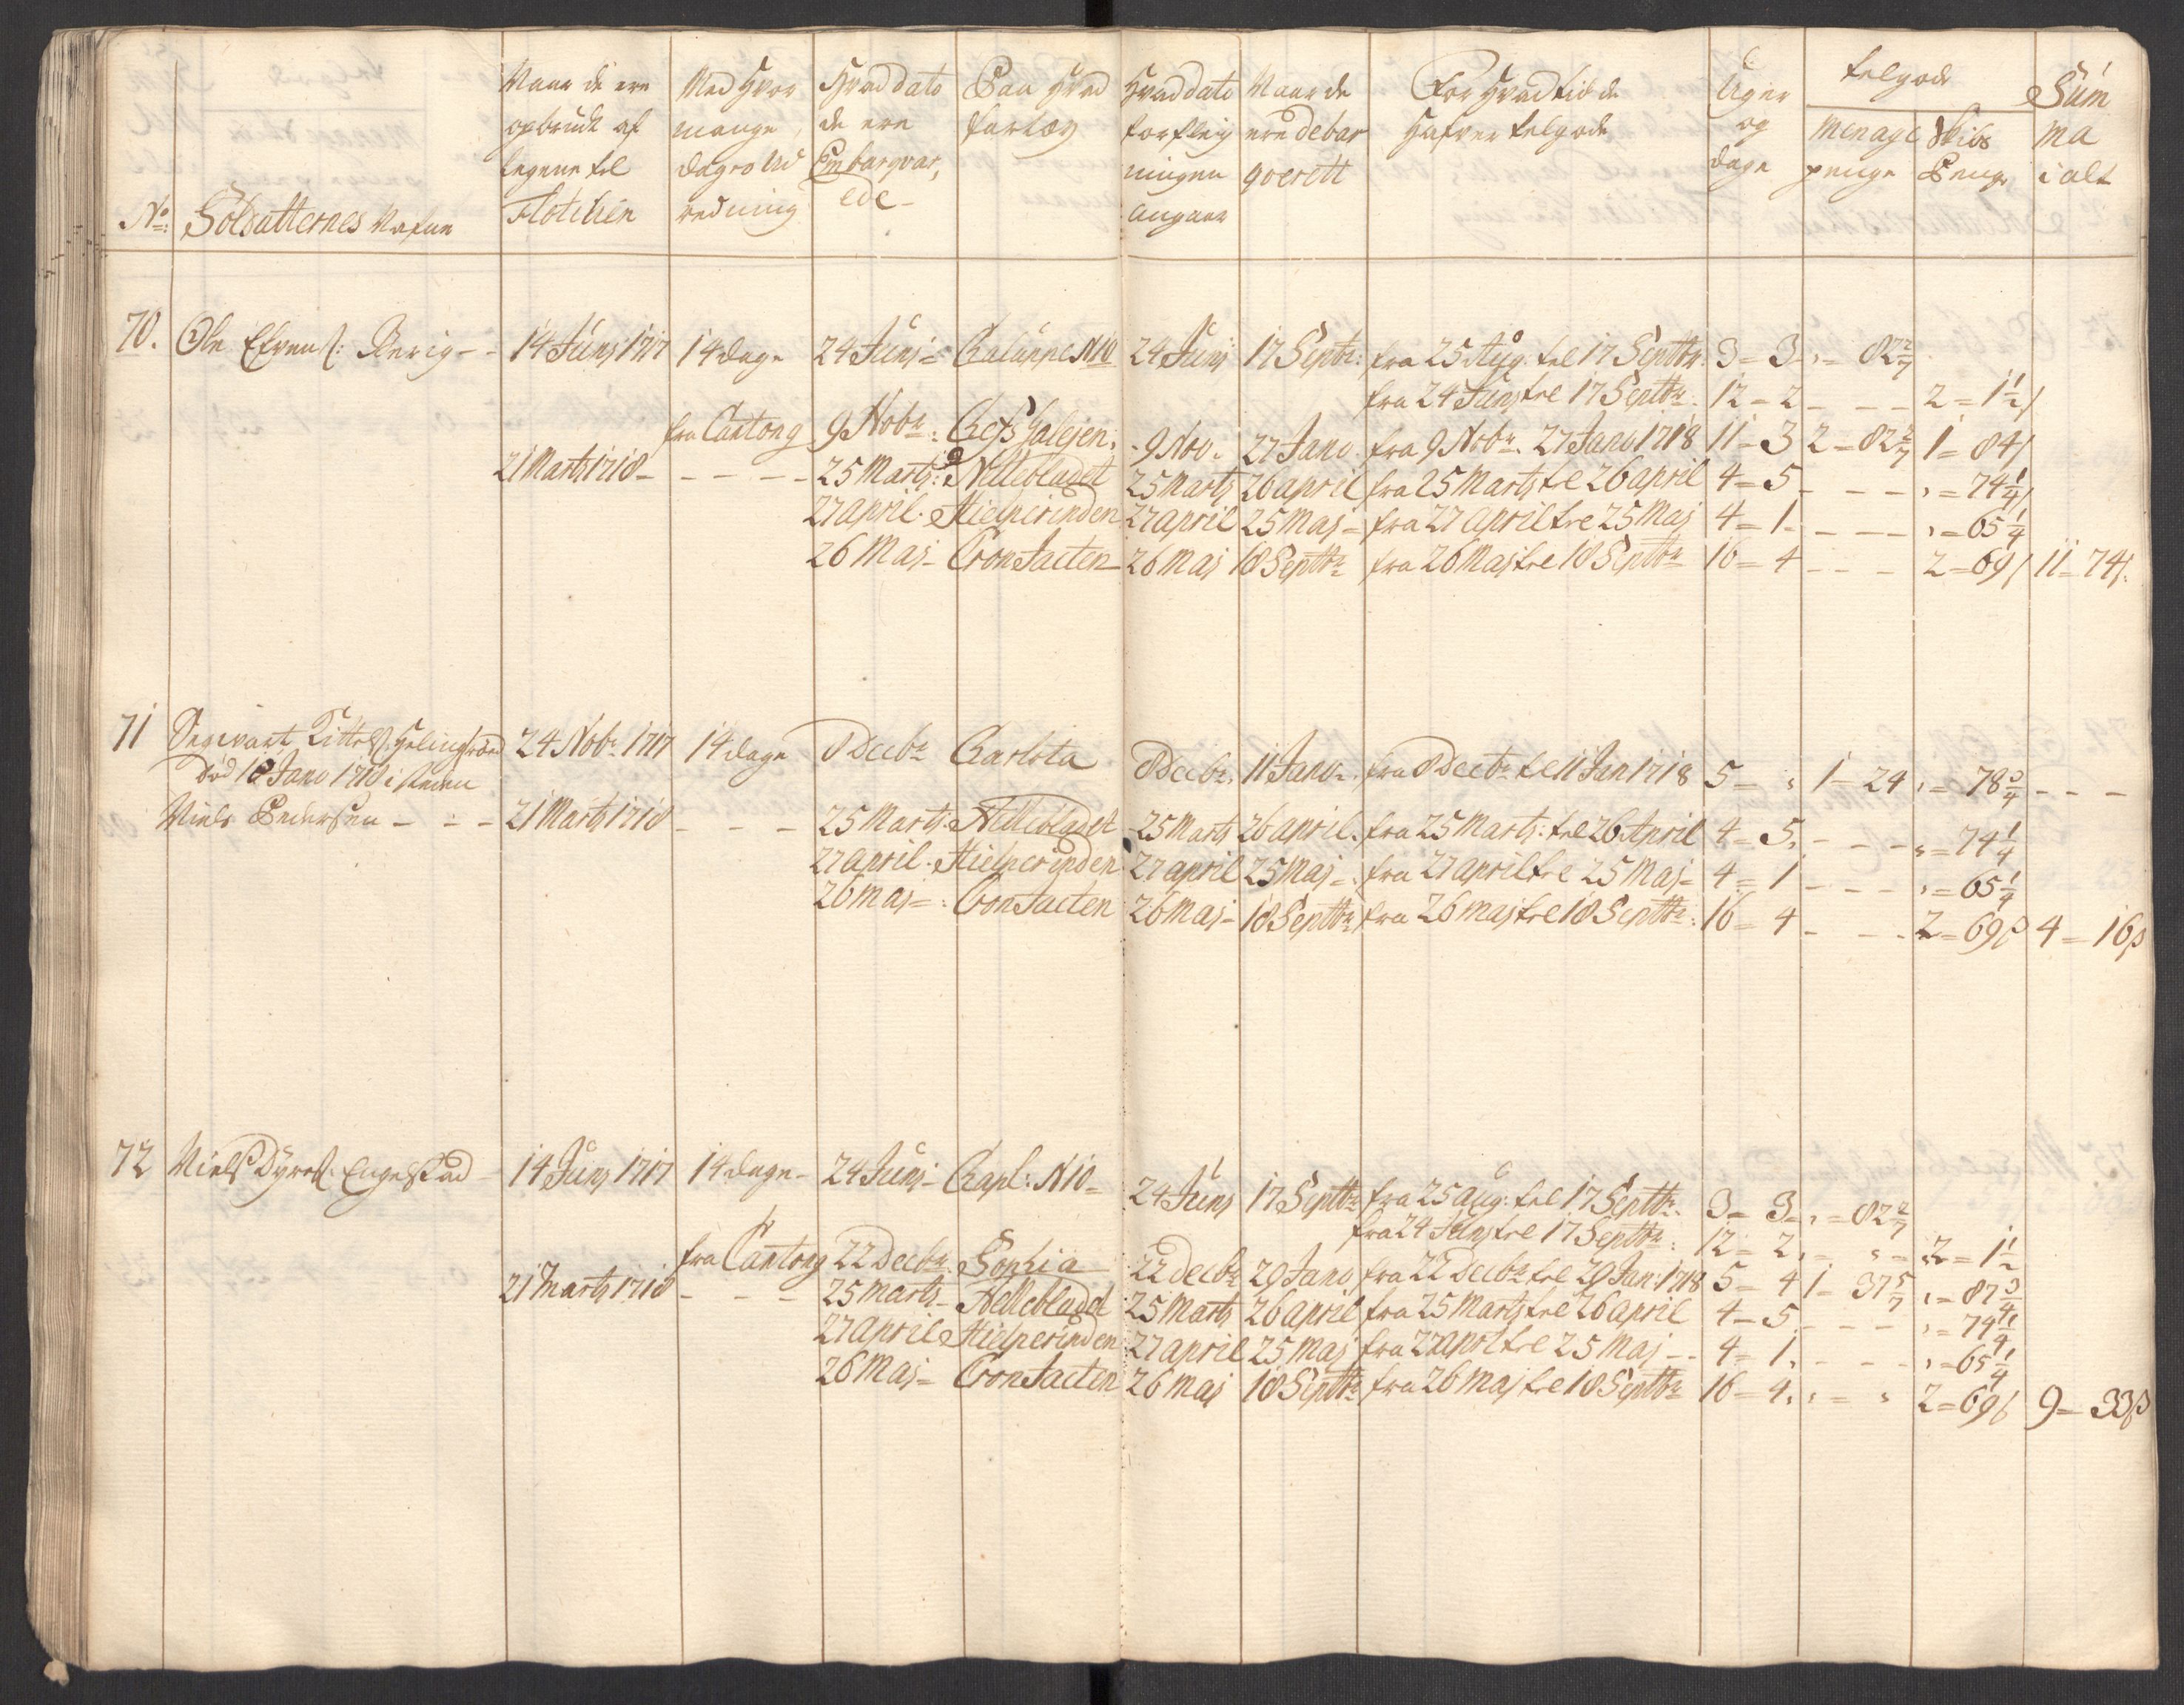 No: Soldatternes Nafne
Naar de ere opbrudt af legene til Flotillien
Med Hvor mange dages Udredning
Hvad dato de ere Embarqverede
Paa Hvad fartøy
Hvad dato forfleigningen angaar
Naar de ere debarqverett
For Hvad tid de Hafver tilgode
Uger og dage
tilgode
Menage penge
Skibs Penge
Summa i alt
70. Ole Efvens: - - 14 Junj 1717 14 dage 24 Junj = Galünne N10 24 Junj 17 Septr: fra 25 Aug. til 17 Septbr. 3 = 3 - „ = 82 2/7
fra 24 Junj til 17 Septbr: 12 = 2 - - - 2 = 1 1/2 ſ
fra Cantong 9 Nobr: Galejen: 9 Nov. 27 Jano fra 9 Nobr. 27 Jano 1718 11 = 3 2 = 82 2/7 1 = 84 ſ
21 Marts 1718 - - - - 25 Marts: Nellebladet 25 Marts 26 april fra 25 Marts til 26 april 4 = 5 - - - „ = 74 1/4 ſ
27 april. Hielperinden 27 april 25 Maj = fra 27 april til 25 Maj 4 = 1 - - - - „ = 65 1/4
26 Maj - Cron Jacten 26 Maj 18 Septbr fra 26 Maj til 18 Septbr 16 = 4 - - - 2 = 69 ſ 11 = 74 ſ.
71 Segevart Kittels: 24 Nobr 1717 14 dage 8 Decbr Carlota 8 Decbr. 11 Jano. fra 8 Decbr til 11 Jan 1718 5 = „ 1 - 24 „ = 78 3/4 - - -
død 18 Jano 1718 i steden
Niels Pedersen - - - 21 Marts 1718 - - - 25 Marts: Nellebladet 25 Marts 26 april. fra 25 Marts: til 26 April 4 = 5. - - - „ = 74 1/4
27 april. Hielperinden 27 april 25 Maj - fra 27 april til 25 Maj - 4 = 1 - - - - „ = 65 1/4
26 Maj = Cron Jacten 26 Maj - 18 Septbr fra 26 Maj til 18 Septbr: 16 = 4 - - - 2 = 69 ß 4 = 16 ß
72 Niels Dyres: Engestad 14 Junj 1717 14 dage - 24 Junj - Gapl: N10 = 24 Junj 17 Septbr fra 25 Aug: til 17 Septbr. 3 = 3 - „ = 82 2/7
fra 24 Junj til 17 Septbr: 12 = 2 „ = „ = 2 = 1 1/2
fra Cantong 22 Decbr. Sophia 22 Decbr 29 Jano fra 22 Decbr til 29 Jan: 1718 5 = 4 1 = 37 5/7 „ = 87 3/4
21 Marts 1718 - - - 25 Marts - Nellebladet 25 Marts 26 april fra 25 Marts til 26 april 4 = 5 - - - „ = 74 1/4
27 april Hielperinden 27 april 25 Maj fra 27 april til 25 Maj - - 4 = 1. - - - „ = 65 1/4
26 Maj = Cron Jacten 26 Maj 18 Septbr fra 26 Maj til 18 Septbr 16 = 4. „ = „ 2 = 69 ſ 9 = 33 ß